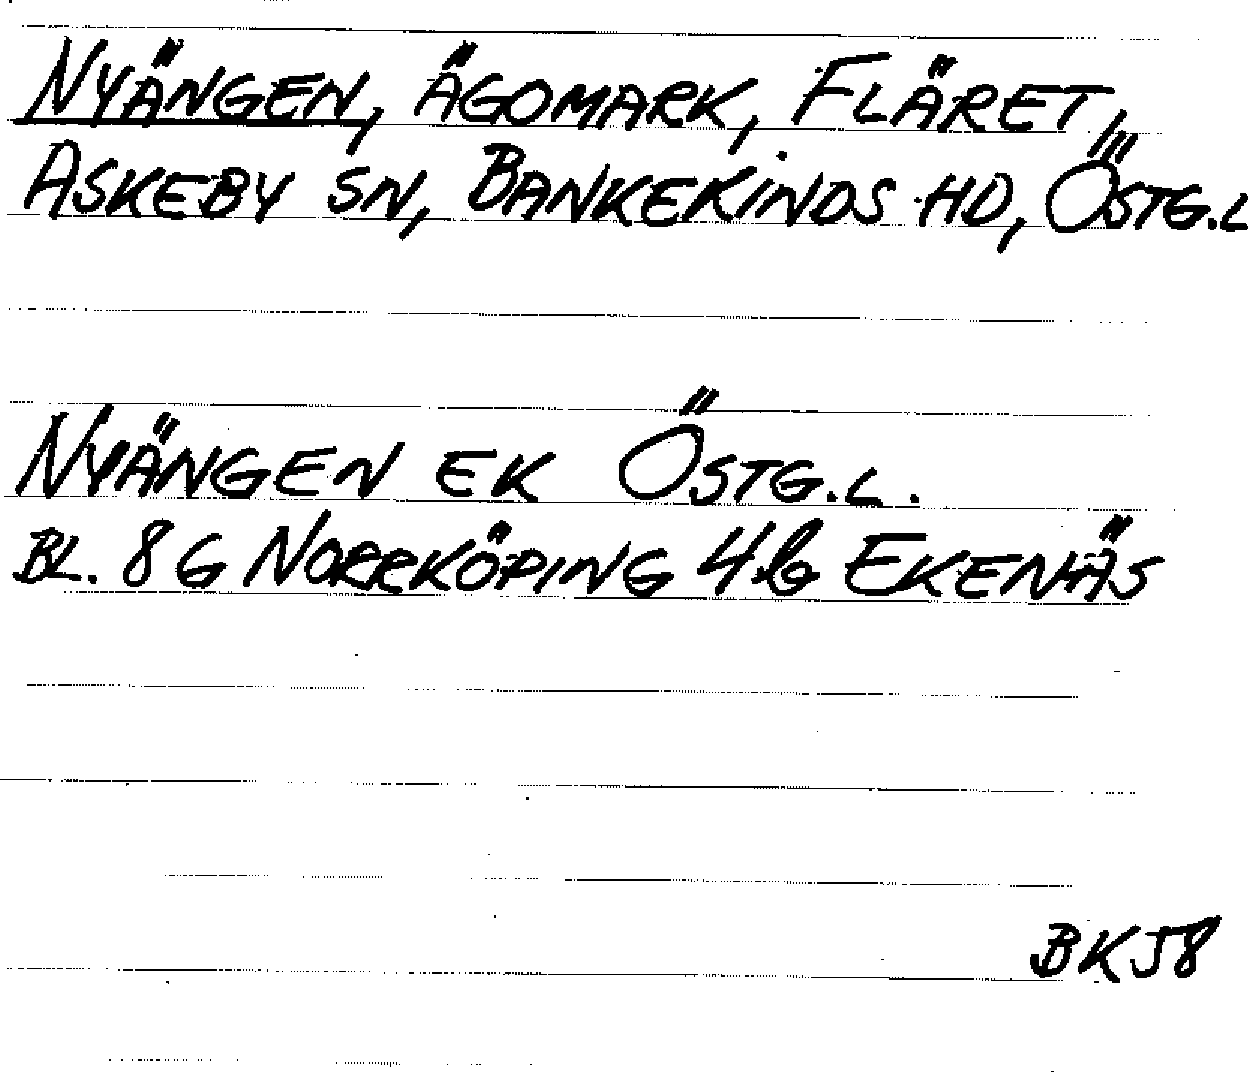 NYÄNGEN, ÄGOMARK, FLÄRET,
ASKEBY SN, BANKEKINDS HD, ÖSTG.L
NYÄNGEN EK ÖSTG.L.
BL. 8G NORRKÖPING 4b EKENÄS
BKJ8